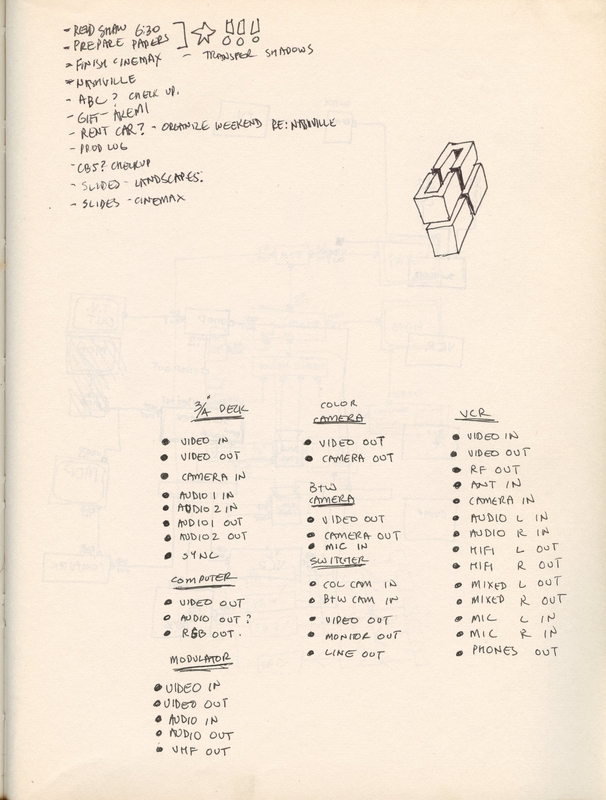 - READ SHAW 6:30
- PREPARE PAPERS ] ☆ !!!
- FINISH CINEMAX - TRANSFER SHADOWS
- NASHVILLE
- ABC? CHECK UP.
- GIFT - AKEMI
- RENT CAR? - ORGANIZE WEEKEND RE: NASHVILLE
- PROD LOG
- CBS? CHECKUP
- SLIDES - LANDSCAPES.
- SLIDES - CINEMAX
3/4" DECK
• VIDEO IN
• VIDEO OUT
• CAMERA IN
• AUDIO 1 IN
• AUDIO 2 IN
• AUDIO 1 OUT
• AUDIO 2 OUT
• SYNC
COMPUTER
• VIDEO OUT
• AUDIO OUT?
• RGB OUT.
MODULATOR
• VIDEO IN
• VIDEO OUT
• AUDIO IN
• AUDIO OUT
• VHF OUT
COLOR
CAMERA
• VIDEO OUT
• CAMERA OUT
B+W
CAMERA
• VIDEO OUT
• CAMERA OUT
• MIC IN
SWITCHER
• COL CAM IN
• B+W CAM IN
• VIDEO OUT
• MONITOR OUT
• LINE OUT
VCR
• VIDEO IN
• VIDEO OUT
• RF OUT
• ANT IN
• CAMERA IN
• AUDIO L IN
• AUDIO R IN
• HIFI L OUT
• HIFI R OUT
• MIXED L OUT
• MIXED R OUT
• MIC L IN
• MIC R IN
• PHONES OUT